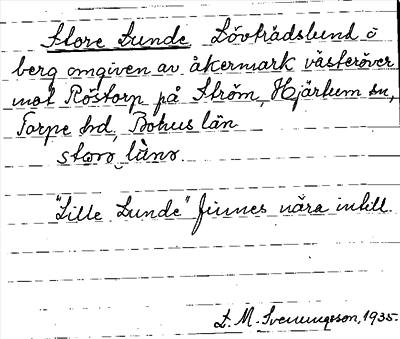 Store Lunde Lövträdslund å
berg omgiven av åkermark västeröver
mot Röstorp på Ström, Hjärtum sn,
Torpe hd, Bohus län
storo lùnə.
"Lille Lunde" finnes nära intill.
L. M. Svenungsson, 1935.